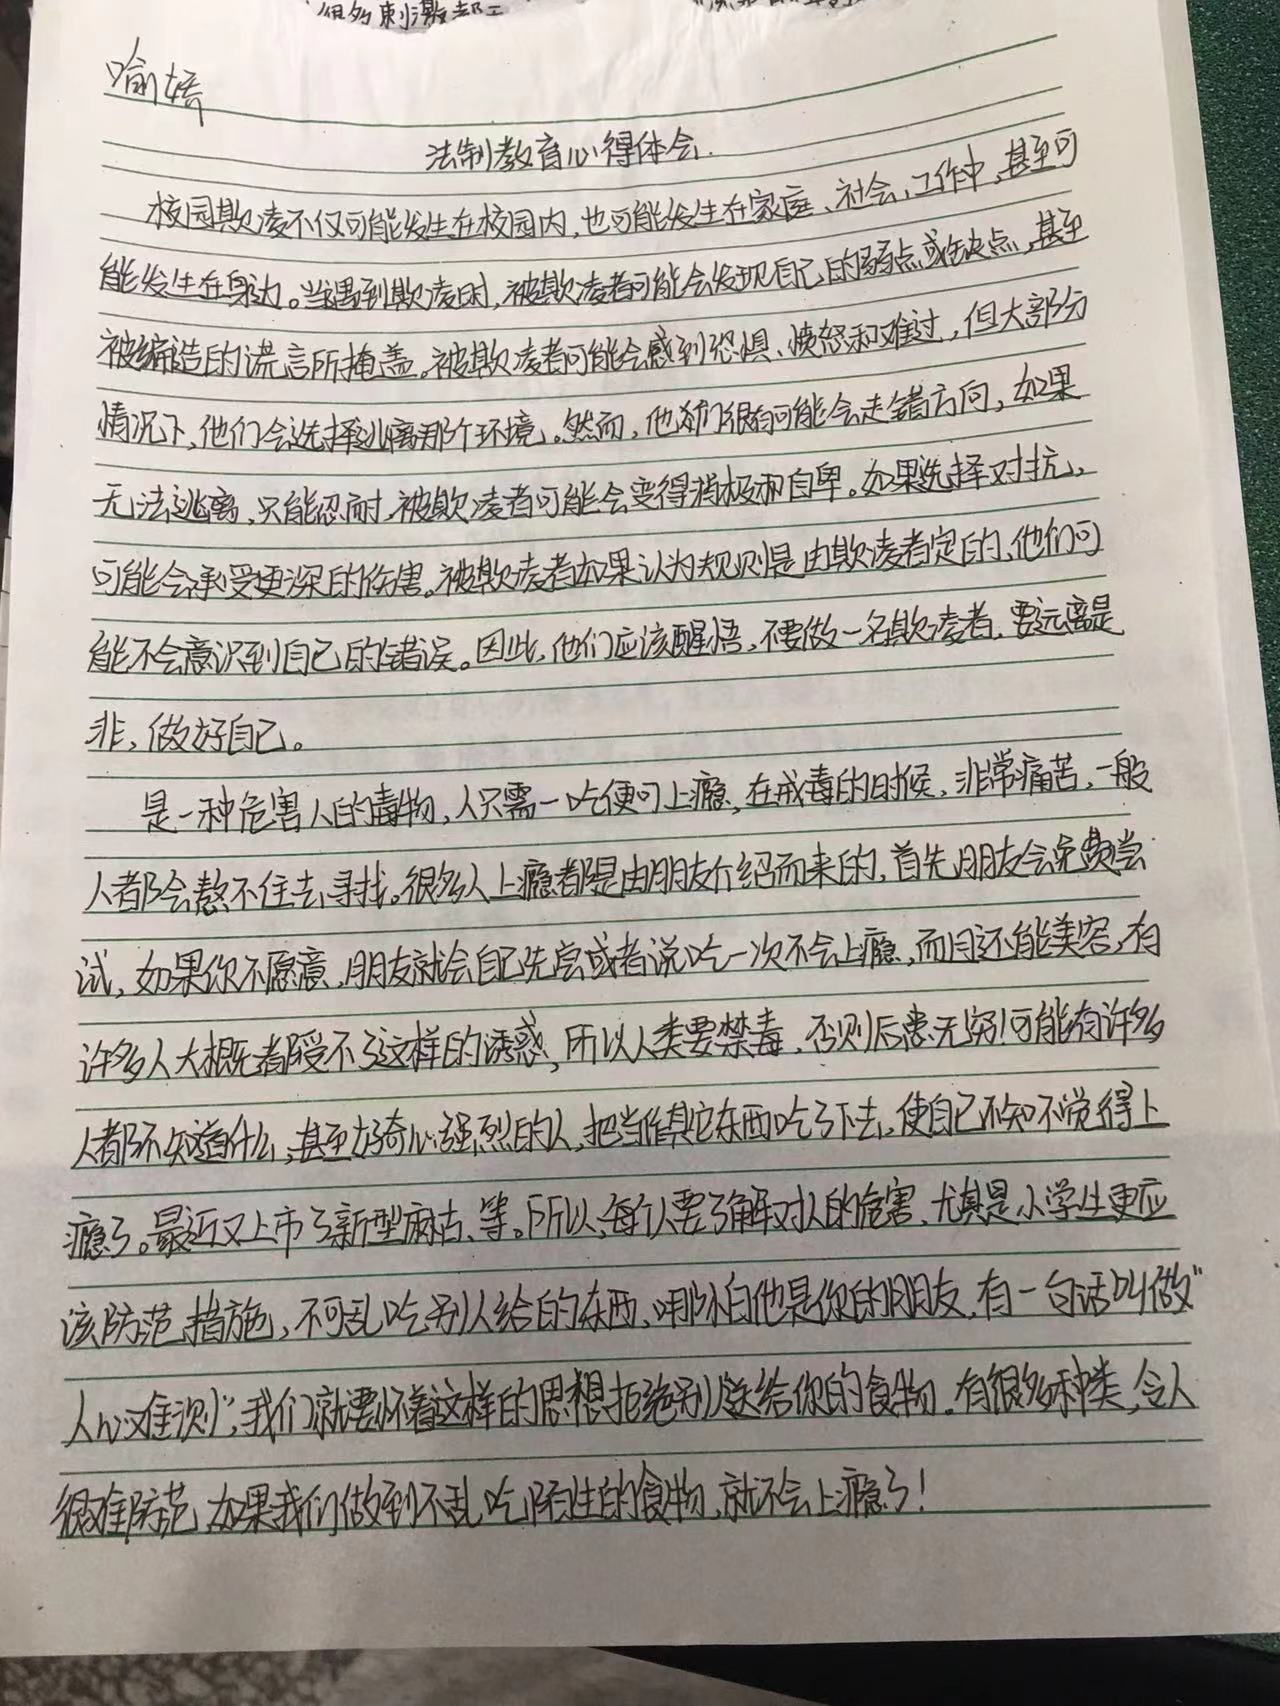 很多刺激都
喻婧
法制教育心得体会.
校园欺凌不仅可能发生在校园内,也可能发生在家庭、社会、工作中,甚至可
能发生在身边。当遇到欺凌时,被欺凌者可能会发现自己的弱点或缺点,甚至
被编造的谎言所掩盖。被欺凌者可能会感到恐惧、愤怒和难过,但大部分
情况下,他们会选择逃离那个环境。然而,他们很有可能会走错方向,如果
无法逃离,只能忍耐,被欺凌者可能会变得消极和自卑。如果选择对抗,
可能会承受更深的伤害。被欺凌者如果认为规则是由欺凌者定的,他们可
能不会意识到自己的错误。因此,他们应该醒悟,不要做一名欺凌者,要远离是
非,做好自己。
是一种危害人的毒物,人只需一吃便可上瘾,在戒毒的时候,非常痛苦,一般
人都会熬不住去寻找。很多人上瘾都是由朋友介绍而来的,首先朋友会免费尝
试,如果你不愿意,朋友就会自己先尝或者说吃一次不会上瘾,而且还能美容,有
许多人大概都受不了这样的诱惑,所以人类要禁毒,否则后患无穷!可能有许多
人都不知道什么,甚至好奇心强烈的人,把当作其它东西吃了下去,使自己不知不觉得上
瘾了。最近又上市了新型麻古、等。所以,每个人要了解对人的危害,尤其是小学生更应
该防范措施,不可乱吃别人给的东西,哪怕他是你的朋友,有一句话叫做“
人心难测”,我们就要怀着这样的思想拒绝别人送给你的食物。有很多种类,令人
很难防范,如果我们做到不乱吃陌生的食物,就不会上瘾了!